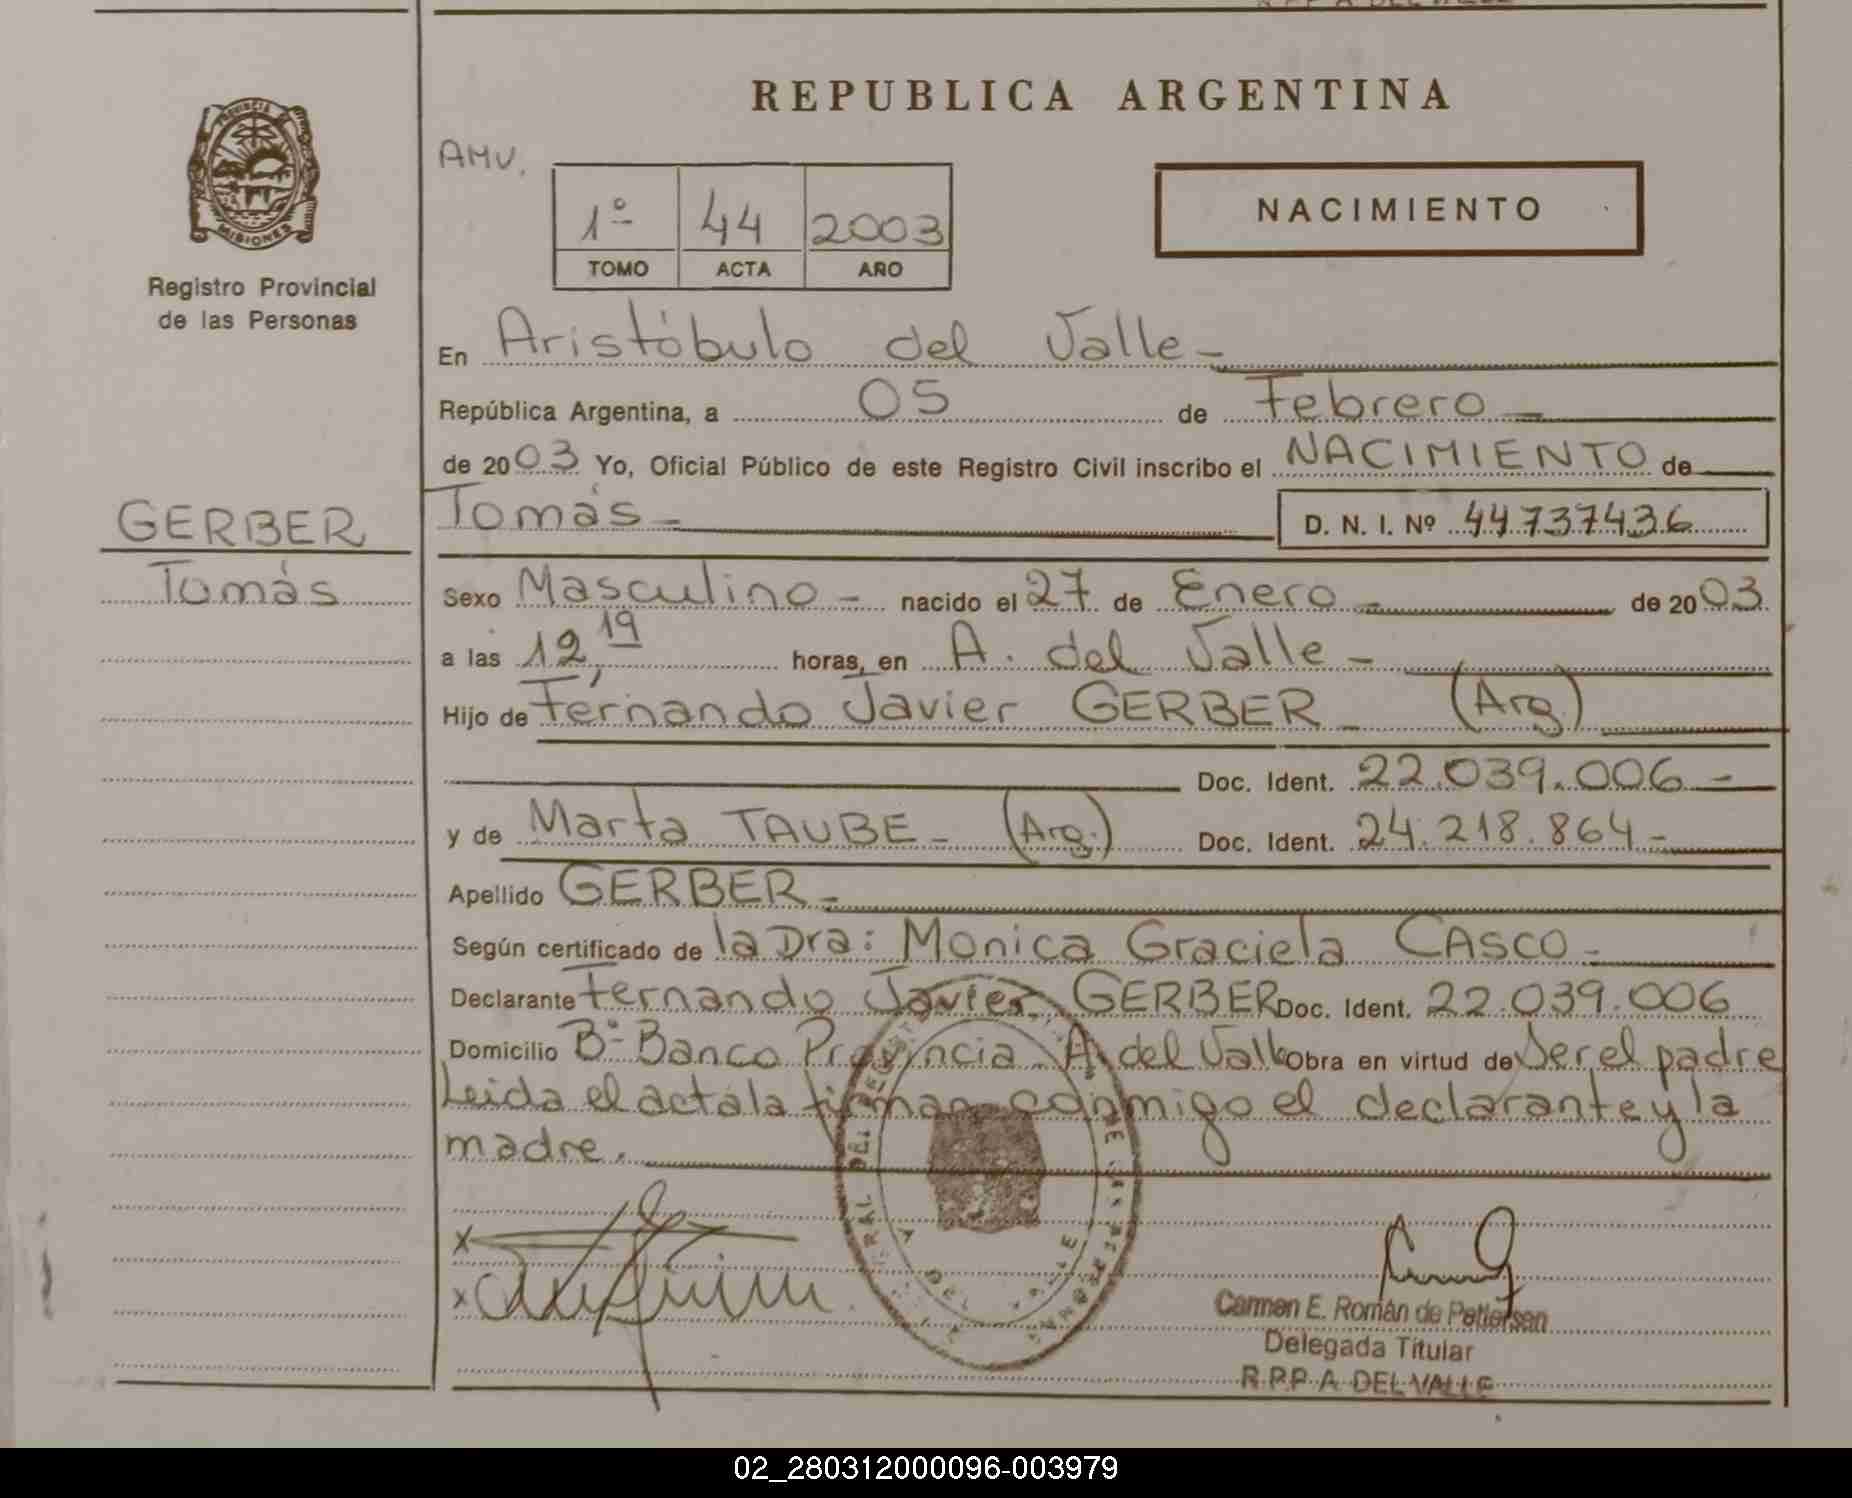 REPUBLICA ARGENTINA
PROVINCIA DE
MISIONES
Registro Provincial
de las Personas
AMV.
1º 44 2003
TOMO ACTA AÑO
NACIMIENTO
En Aristóbulo del Valle -
República Argentina, a 05 de Febrero -
de 2003 Yo, Oficial Público de este Registro Civil inscribo el NACIMIENTO de
GERBER
Tomás
Tomás - D. N. I. Nº 44737436
Sexo Masculino - nacido el 27 de Enero - de 2003
a las 12,19 horas, en A. del Valle -
Hijo de Fernando Javier GERBER - (Arg)
Doc. Ident. 22.039.006 -
y de Marta TAUBE - (Arg.) Doc. Ident. 24.218.864 -
Apellido GERBER -
Según certificado de la Dra: Monica Graciela CASCO -
Declarante Fernando Javier GERBER Doc. Ident. 22.039.006
Domicilio Bº Banco Provincia - A del Valle Obra en virtud de Ser el padre
Leida el acta la firman conmigo el declarante y la
madre.
X
X
A DEL VALLE
Carmen E. Román de Petersen
Delegada Titular
R.P.P. A. DEL VALLE
02_280312000096-003979